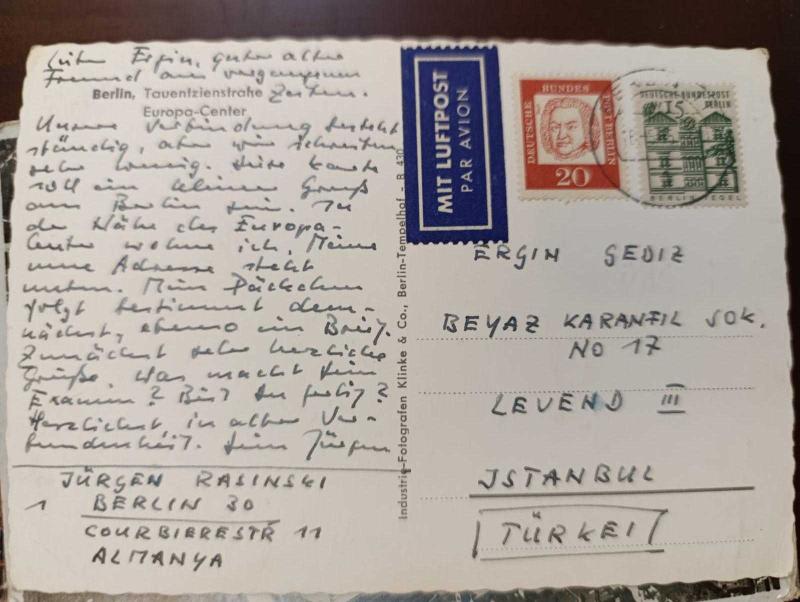 Lieber Ergin, guter alter
Freund aus vergangenen
Zeiten.
Berlin, Tauentzienstraße
Europa-Center
Unsere Verbindung besteht
ständig, aber wir schreiben
sehr wenig. Diese Karte
soll ein kleiner Gruß
aus Berlin sein. In
der Nähe des Europa-
Center wohne ich. Meine
neue Adresse steht
unten. Mein Päckchen
folgt bestimmt dem-
nächst, ebenso ein Brief.
Zunächst sehr herzliche
Grüße. Was macht Dein
Examen? Bist Du fertig?
Herzlichst, in alter Ver-
bundenheit. Dein Jürgen
JÜRGEN RASINSKI
1 BERLIN 30
COURBIERESTR 11
ALMANYA
Industrie-Fotografen Klinke & Co., Berlin-Tempelhof - B 430
MIT LUFTPOST
PAR AVION
DEUTSCHE BUNDESPOST BERLIN
20
DEUTSCHE BUNDESPOST
BERLIN
15
BERLIN TEGEL
ERGIN GEDIZ
BEYAZ KARANFIL SOK.
NO 17
LEVEND III
ISTANBUL
TÜRKEI